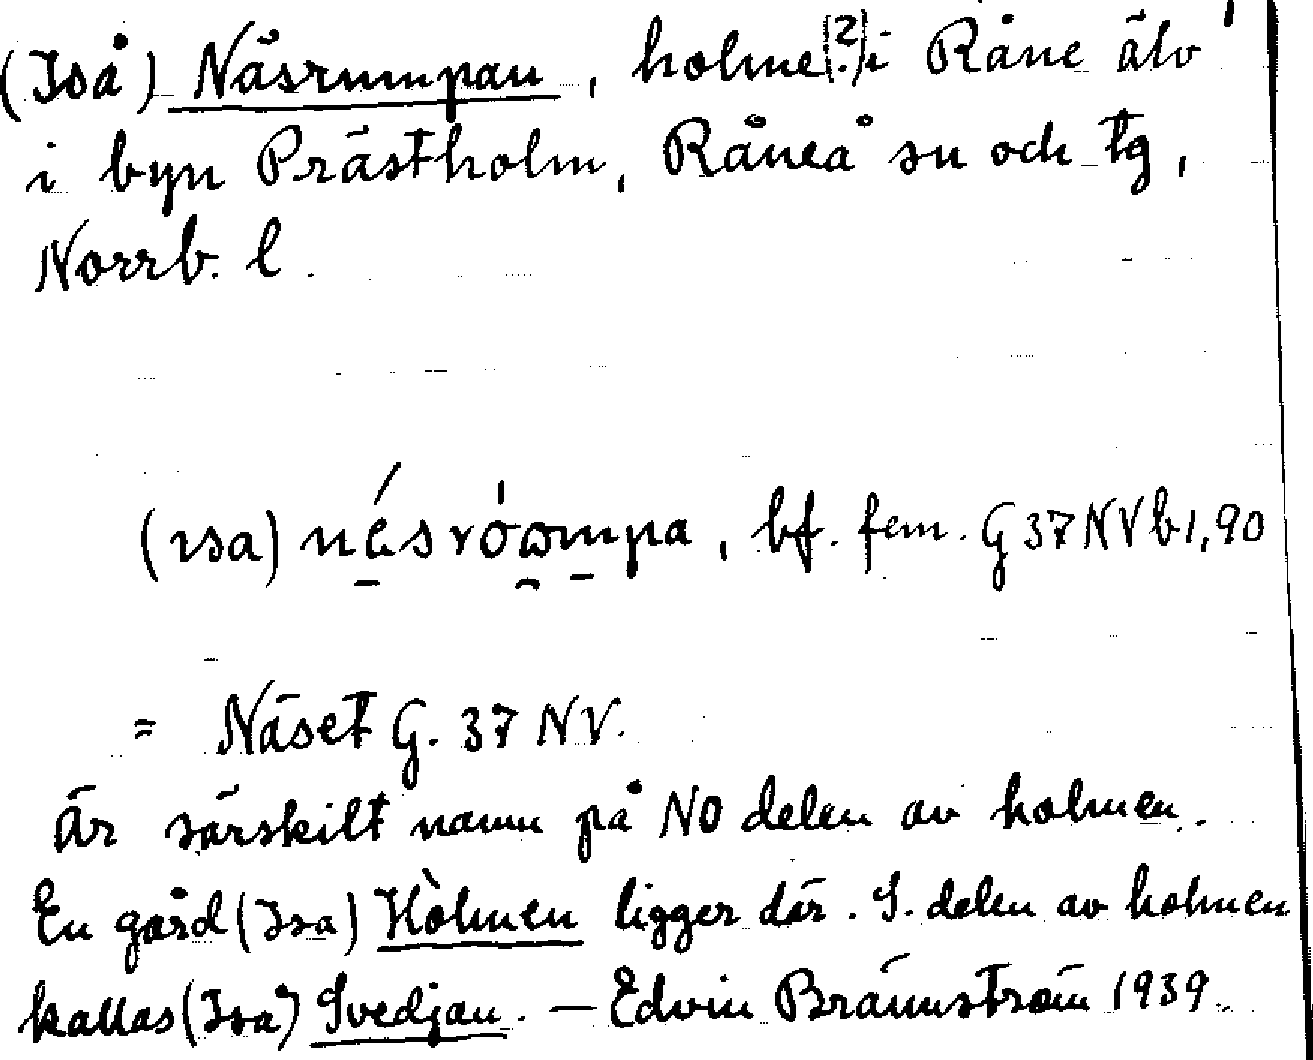 (Iså) Näsrumpan, holme[?] i Råne älv
i byn Prästholm, Råneå sn och tg,
Norrb. l.
bf. fem. G 37 NV b 1, 90
= Näset G. 37 NV.
Är särskilt namn på NO delen av holmen.
En gård (Isa) Hòlmen ligger där. S. delen av holmen
kallas (Iså) Svedjan. — Edvin Brännström 1939.